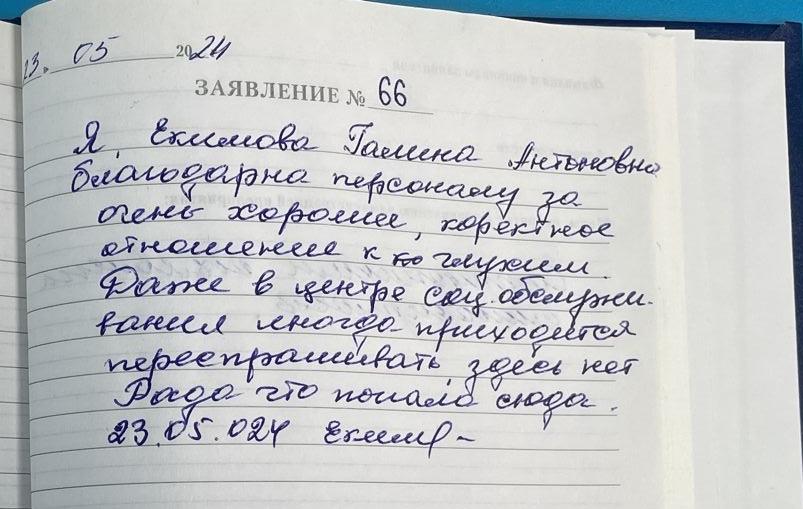 23. 05 2024
ЗАЯВЛЕНИЕ № 66
Я, Екимова Галина Антоновна
благодарна персоналу за
очень хорошее, коректное
отношение к глухим.
Даже в центре соц. обслужи-
вания иногда приходится
переспрашивать, здесь нет
Рада что попала сюда.
23.05.024 Еким